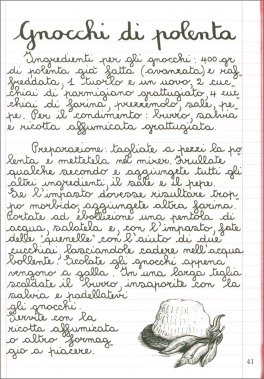 Gnocchi di polenta
Ingredienti per gli gnocchi: 400 gr
di polenta già fatta (avanzata) e raf-
freddata, 1 tuorlo e un uovo, 2 cuc-
chiai di parmigiano grattugiato, 4 cuc
chiai di farina, prezzemolo, sale, pe-
pe. Per il condimento: burro, salvia
e ricotta affumicata grattugiata.
Preparazione: tagliate a pezzi la po
lenta e mettetela nel mixer. Frullate
qualche secondo e aggiungete tutti gli
altri ingredienti, il sale e il pepe.
Se l'impasto dovesse risultare trop-
po morbido, aggiungete altra farina.
Portate ad ebollizione una pentola di
acqua, salatela e, con l'impasto, fate
delle "quenelle" con l'aiuto di due
cucchiai lasciandole cadere nell'acqua
bollente. Scolate gli gnocchi appena
vengono a galla. In una larga teglia
scaldate il burro, insaporite con la
salvia e padellatevi
gli gnocchi.
Servite con la
ricotta affumicata
o altro formag
gio a piacere.
41